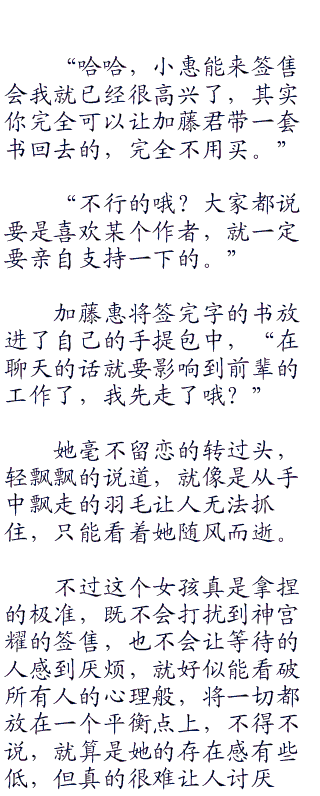 “哈哈，小惠能来签售
会我就已经很高兴了，其实
你完全可以让加藤君带一套
书回去的，完全不用买。”
“不行的哦？大家都说
要是喜欢某个作者，就一定
要亲自支持一下的。”
加藤惠将签完字的书放
进了自己的手提包中，“在
聊天的话就要影响到前辈的
工作了，我先走了哦？”
她毫不留恋的转过头，
轻飘飘的说道，就像是从手
中飘走的羽毛让人无法抓
住，只能看着她随风而逝。
不过这个女孩真是拿捏
的极准，既不会打扰到神宫
耀的签售，也不会让等待的
人感到厌烦，就好似能看破
所有人的心理般，将一切都
放在一个平衡点上，不得不
说，就算是她的存在感有些
低，但真的很难让人讨厌